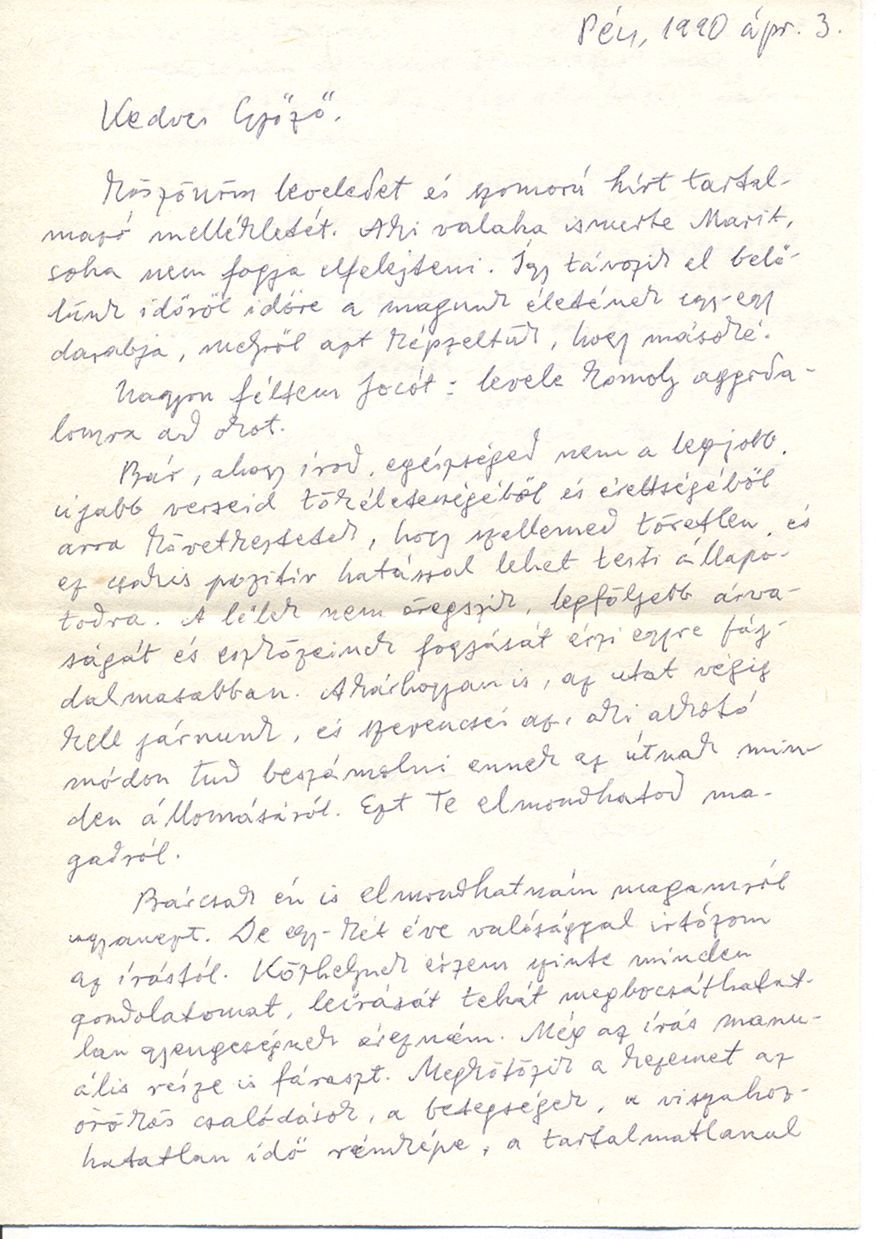 Pécs, 1990 ápr. 3.
Kedves Győző,
Köszönöm leveledet és szomorú hírt tartal-
mazó mellékletét. Aki valaha ismerte Marit,
soha nem fogja elfelejteni. Így távozik el belő-
lünk időről időre a magunk életének egy-egy
darabja, melyről azt képzeltük, hogy másoké.
Nagyon féltem Jocót: levele komoly aggoda-
lomra ad okot.
Bár, ahogy írod, egészséged nem a legjobb,
újabb verseid tökéletességéből és érettségéből
arra következtetek, hogy szellemed töretlen, és
ez csakis pozitív hatással lehet testi állapo-
todra. A lélek nem öregszik, legföljebb árva-
ságát és eszközeinek fogyását érzi egyre fáj-
dalmasabban. Akárhogyan is, az utat végig
kell járnunk, és szerencsés az, aki alkotó
módon tud beszámolni ennek az útnak min-
den állomásáról. Ezt Te elmondhatod ma-
gadról.
Bárcsak én is elmondhatnám magamról
ugyanezt. De egy-két éve valósággal irtózom
az írástól. Közhelynek érzem szinte minden
gondolatomat, leírását tehát megbocsáthatat-
lan gyengeségnek érezném. Még az írás manu-
ális része is fáraszt. Megkötözik a kezemet az
örökös csalódások, a betegségek, a visszahoz-
hatatlan idő rémképe, a tartalmatlanul